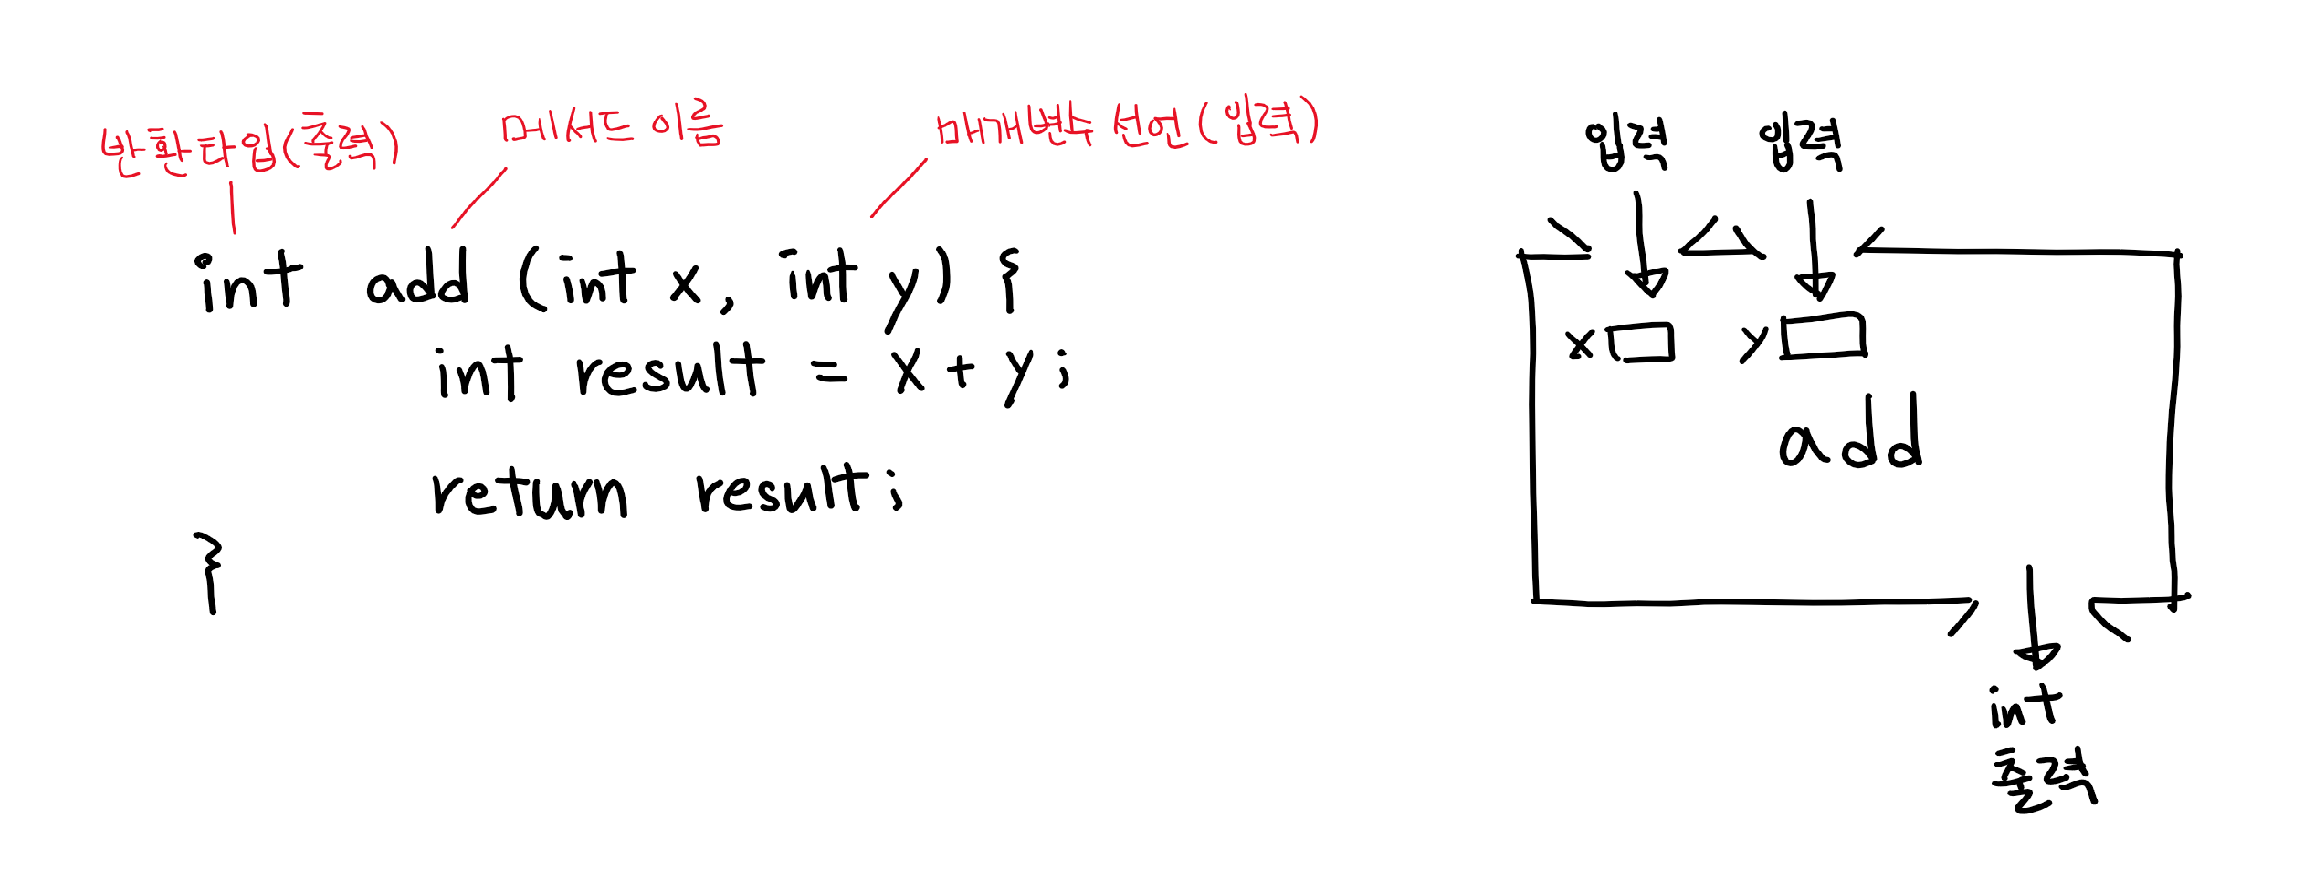 반환타입(출력) 메서드 이름 매개변수 선언(입력)
int add (int x, int y) {
int result = x + y;
return result;
}
입력 입력
x y
add
int
출력